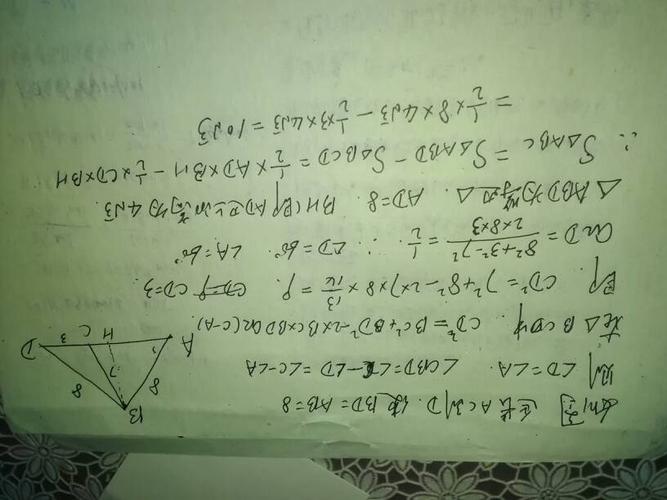 如图 延长AC到D. 使BD=AB=8
则 ∠D=∠A. ∠CBD=∠C-∠D=∠C-∠A
在△BCD中 CD²=BC²+BD²-2×BC×BD cos(C-A)
即 CD²=7²+8²-2×7×8×13/14=9. CD=3.
cosD=(8²+3²-7²)/(2×8×3)=1/2 ∴ ∠D=60° ∠A=60°
△ABD为等边△. AD=8 BH(即AD边上的高)为4√3.
∴ S△ABC=S△ABD-S△BCD=1/2×AD×BH-1/2×CD×BH
=1/2×8×4√3-1/2×3×4√3=10√3
B
8
8
7
A
H
C
3
D